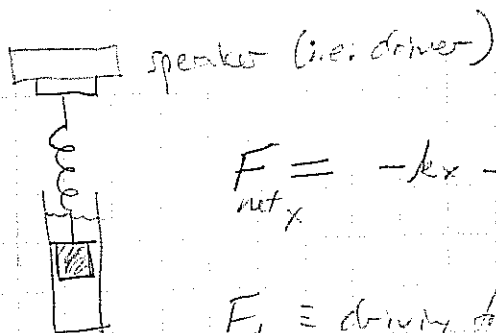 speaker (i.e. driver)
F net x = -kx -
F ≡ driving